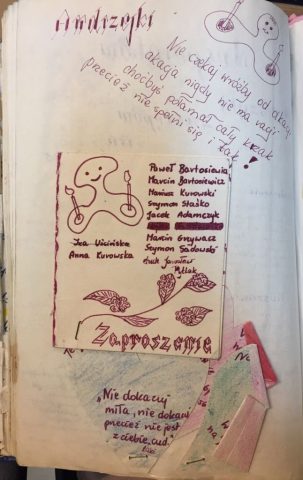 Andrzejki
Nie czekaj wróżby od akacji
akacja nigdy nie ma racji
choćbyś połamał cały krzak
przecież nie spełni się i tak!
Paweł Bartosiewicz
Marcin Bartosiewicz
Mariusz Kurowski
Szymon Staśko
Jacek Adamczyk
Marcin Grywacz
Szymon Sadowski
Pyttak
Iza Uścińska
Anna Kurowska
Zaproszenie
„Nie dokazuj
miła, nie dokazuj
przecież nie jest
z ciebie cud."